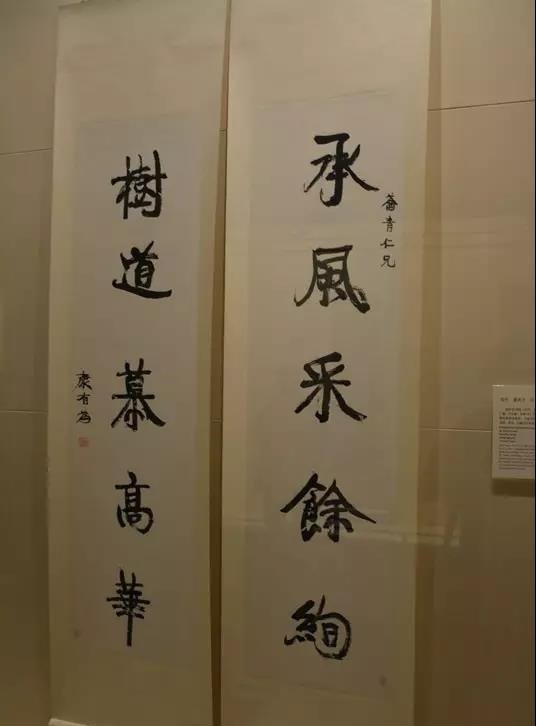 承風采餘絢
薈青仁兄
樹道慕高華
康有為